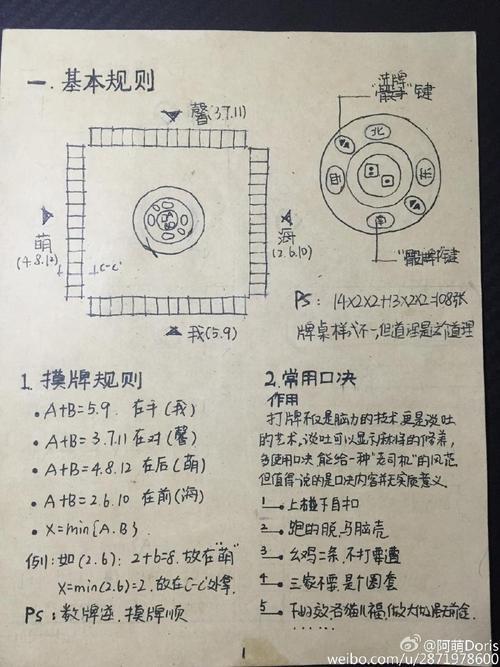 一.基本规则
洗牌
"骰子"键
馨(3.7.11)
萌
(4.8.12)
海
(2.6.10)
C-C'
我(5.9)
北
西
东
南
"骰牌"键
PS: 14×2×2+13×2×2=108张
牌桌样式不一,但道理是这个道理
1.摸牌规则
• A+B=5.9 在手(我)
• A+B=3.7.11 在对(馨)
• A+B=4.8.12 在后(萌)
• A+B=2.6.10 在前(海)
• X=min{A.B}
例:如(2.6): 2+6=8.放在"萌"
X=min(2.6)=2.放在C-C'处拿.
PS: 数牌逆.摸牌顺
2.常用口决
作用
打牌不仅是脑力的技术,更是谈吐
的艺术.谈吐可以显示教样的修养,
多使用口决,能给一种"老司机"的风范
但值得一说的是口决内容并无实质意义.
1 上碰下自扣
2 跑的脱,马脑壳
3 幺鸡二条,不打要遭
4 三家不要,是个圈套
5
1
@阿萌Doris
weibo.com/u/2871978600